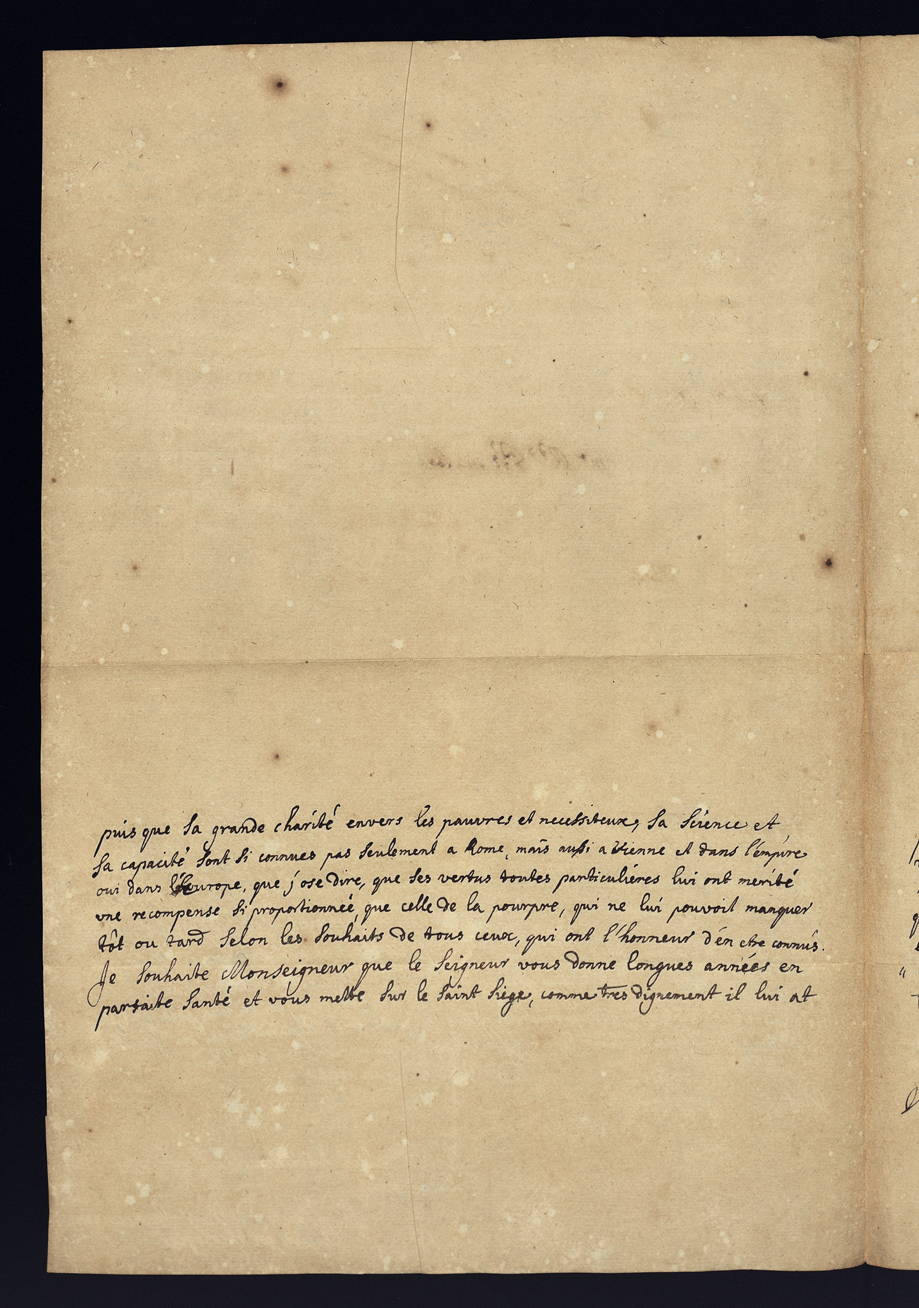 puis que sa grande charité envers les pauvres et necessiteux, sa science et
sa capacité sont si connues pas seulement a Rome, mais aussi a Vienne et dans l'émpire
oui dans l'Europe, que j'ose dire, que ses vertus toutes particulières lui ont merité
une recompense si proportionnée, que celle de la pourpre, qui ne lui pouvoit manquer
tôt ou tard selon les souhaits de tous ceux, qui ont l'honneur d'én etre connus.
Je souhaite Monseigneur que le Seigneur vous donne longues années en
parfaite santé et vous mette sur le saint siége, comme tres dignement il lui at